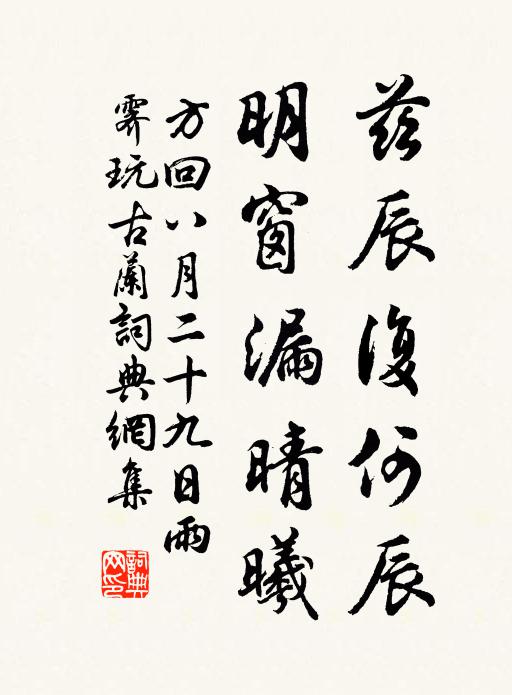 茲辰復何辰
明窗漏晴曦
方回八月二十九日雨
霽玩古蘭詞典網集
詞典
网印